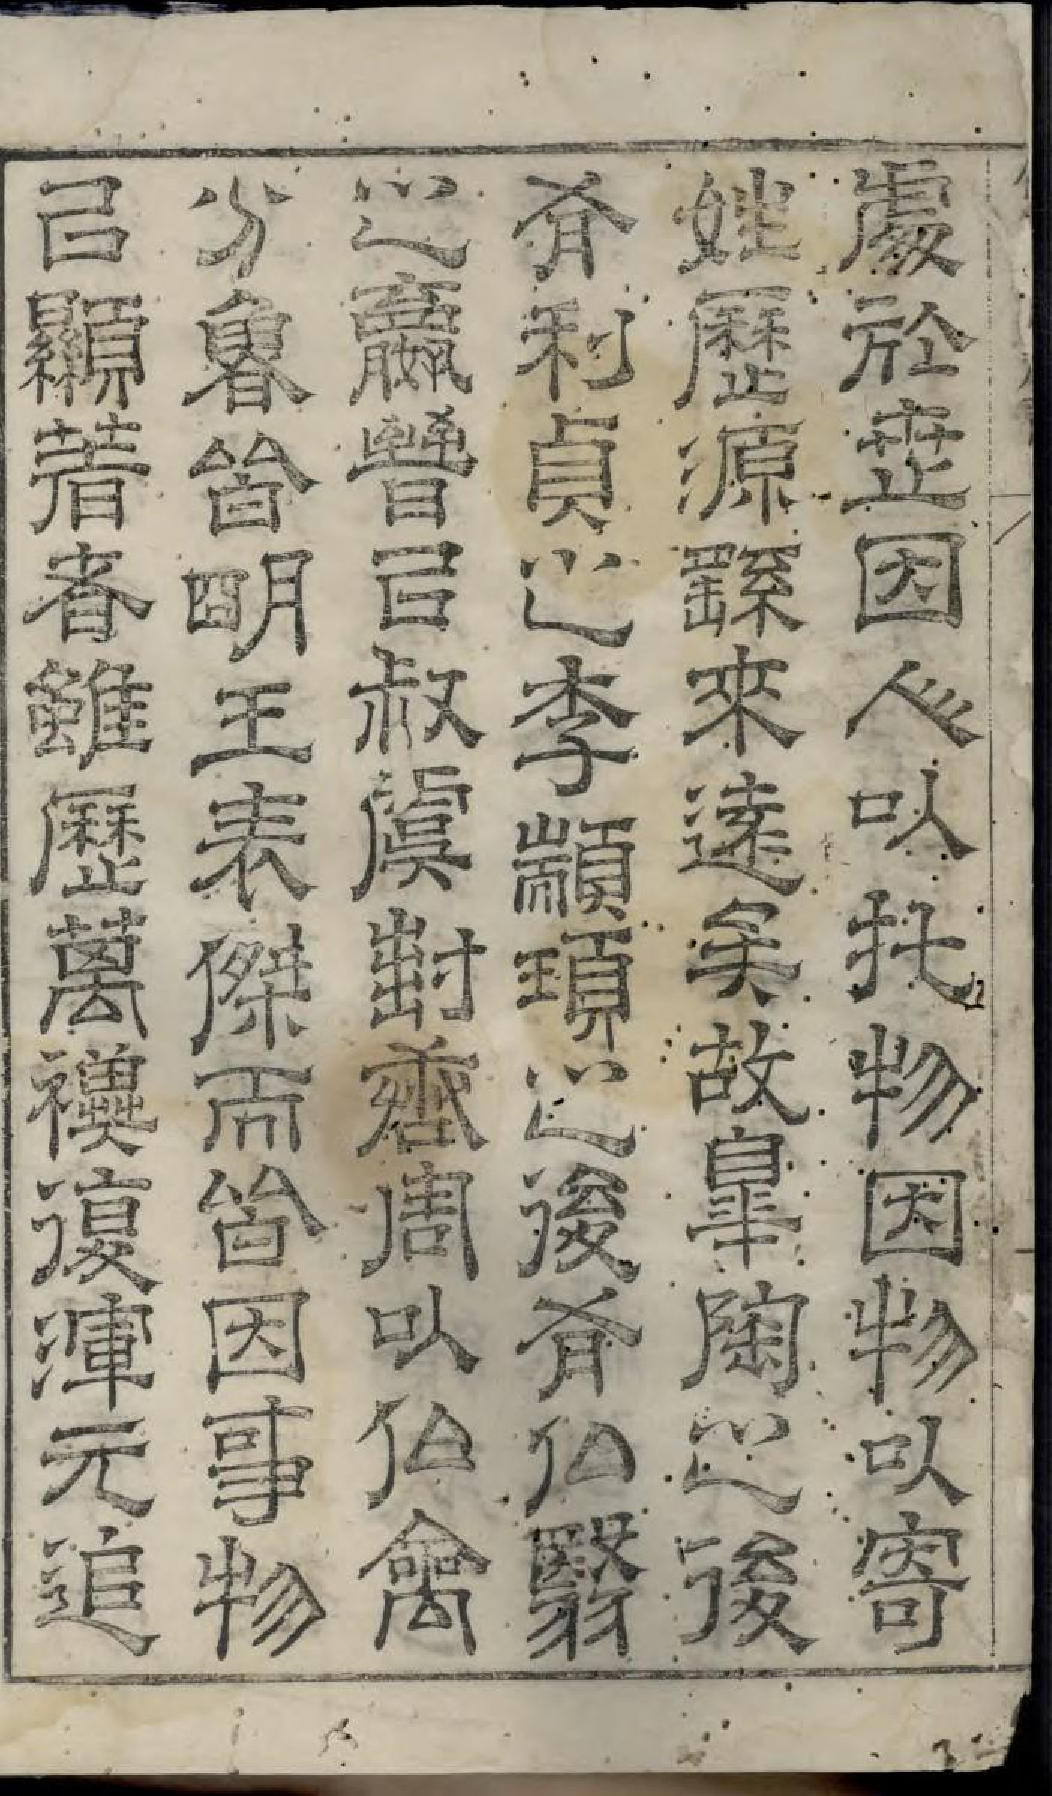 處於世因人以托物因物以寄
姓歷源繇來遠矣故皋陶之後
有利貞之李顓頊之後有伯翳
之嬴晉已叔虞封齊周以伯禽
分魯皆明王表傑而皆因事物
已顯著者雖歷萬禩復渾元追